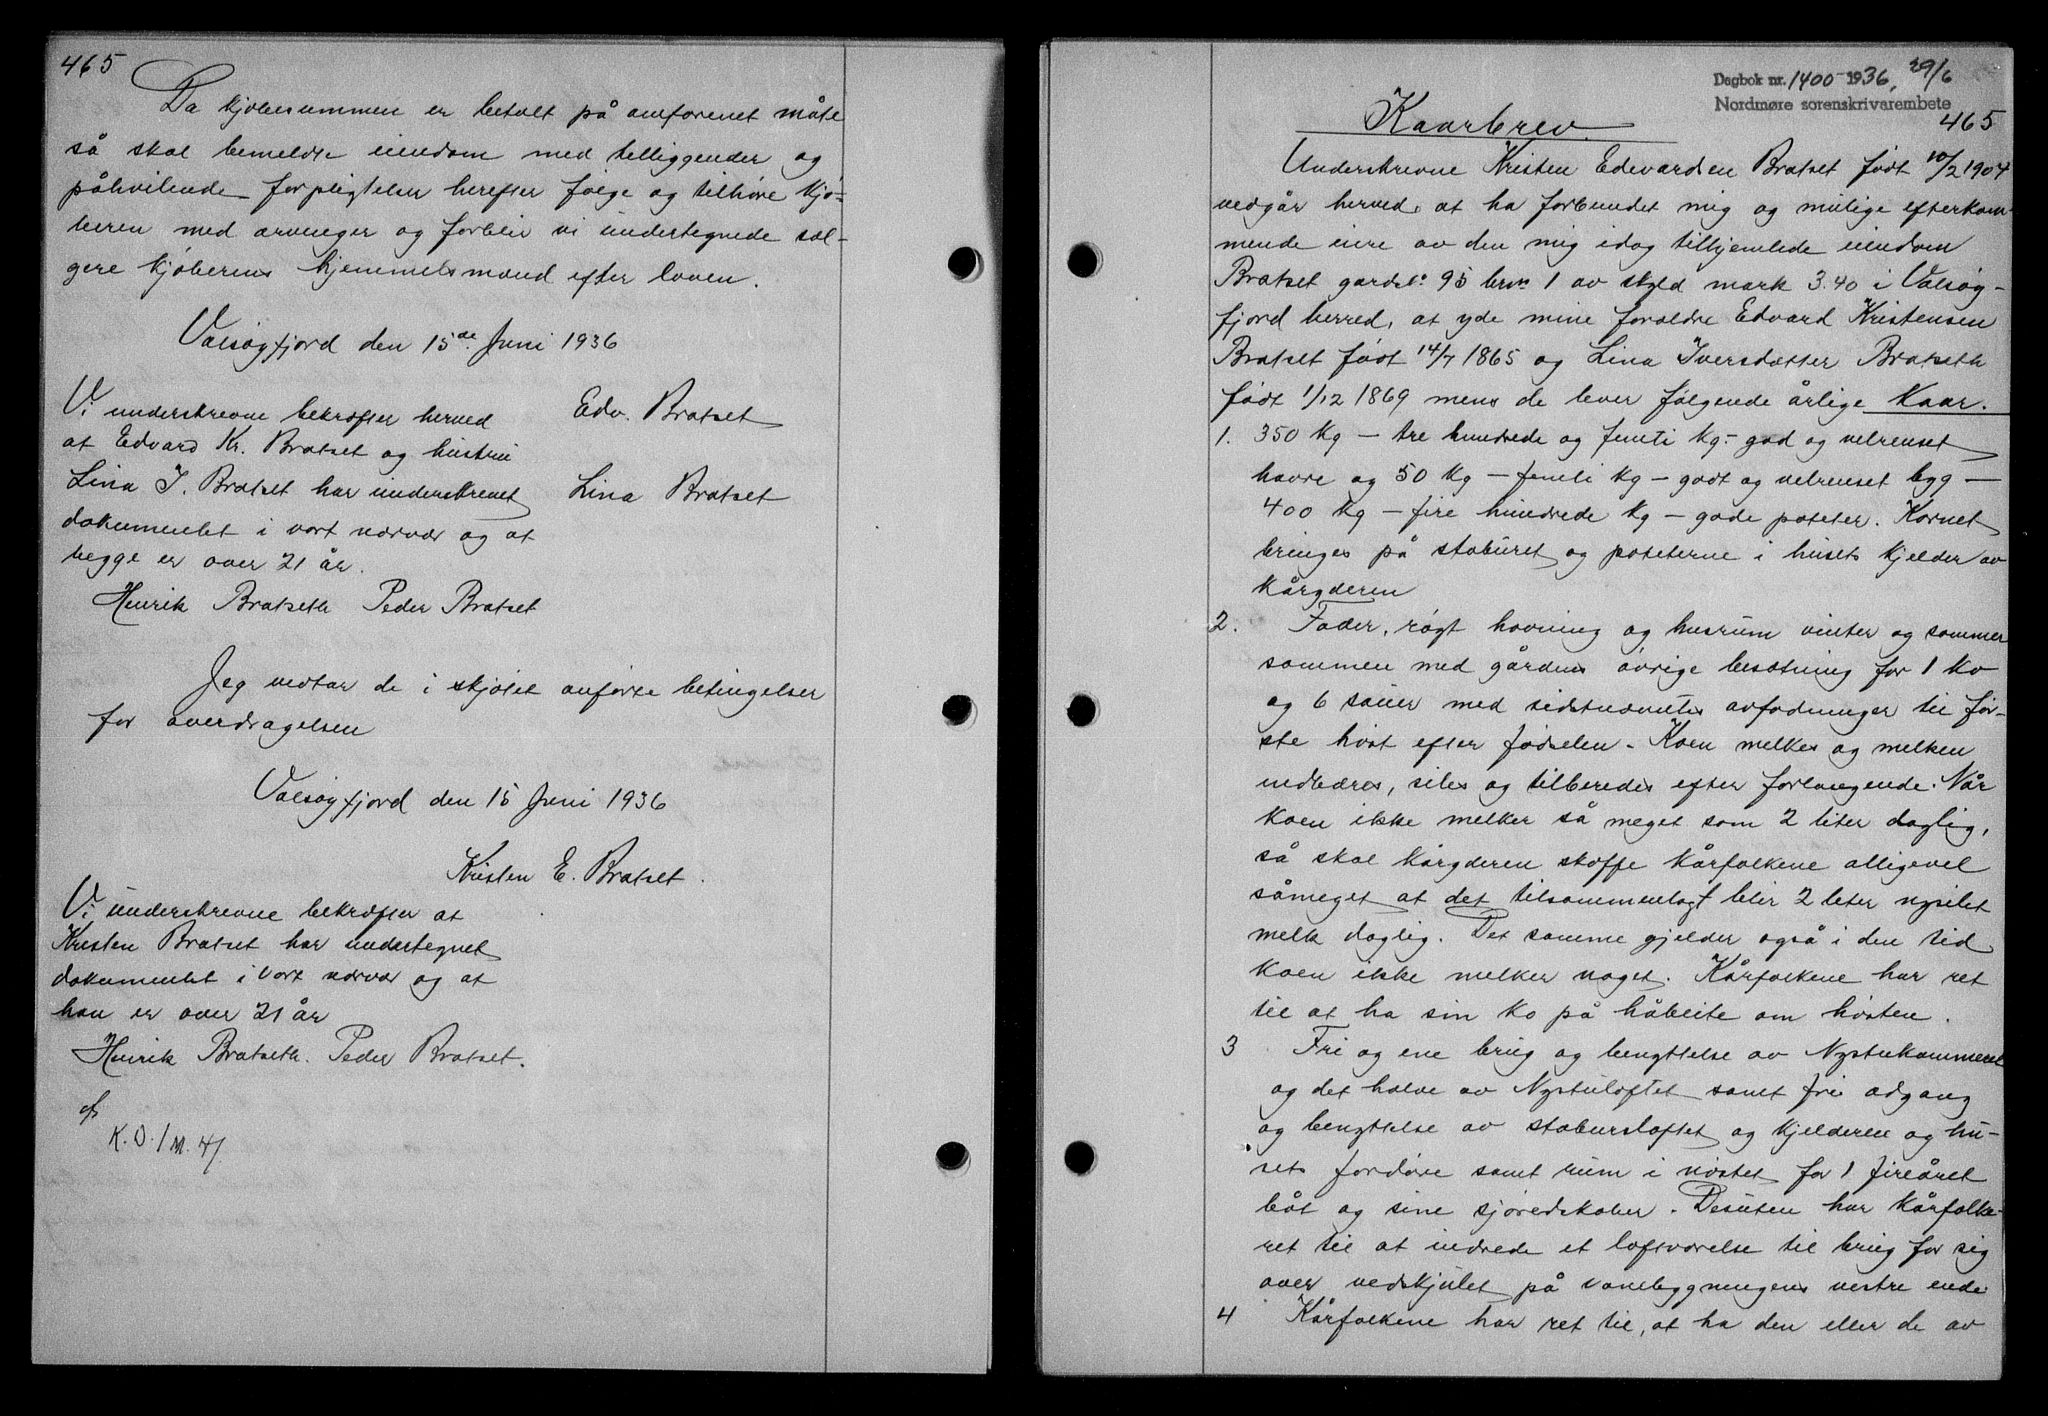 465
Da kjøbesummen er betalt på omforenet måte
så skal bemeldte eiendom med tilliggender og
påhvilende forpligtelser herefter følge og tilhøre kjø-
beren med arvinger og forblir vi undertegnede sæl-
gere kjøberens hjemmelsmænd efter loven.
Valsøyfjord den 15de Juni 1936
Vi underskrevne bekræfter herved
at Edvard Kr. Bratset og hustru
Lina I. Bratset har underskrevet
dokumentet i vort nærvær og at
begge er over 21 år.
Edv. Bratset
Lina Bratset
Henrik Bratseth Peder Bratset
Jeg vedtar de i skjøtet anførte betingelser
for overdragelsen
Valsøyfjord den 15 Juni 1936
Kristen E. Bratset.
Vi underskrevne bekræfter at
Kristen Bratset har undertegnet
dokumentet i vort nærvær og at
han er over 21 år
Henrik Bratseth. Peder Bratset.
K.O. / M. 41
Dagbok nr. 1400 1936, 29/6
Nordmøre sorenskrivarembete
465
Kaarbrev.
Underskrevne Kristen Edvardsen Bratset født 10/2 1904
vedgår herved, at ha forbundet mig og mulige efterkom-
mende eiere av den mig idag tilhjemlede eiendom
Bratset gardsn. 95 brn 1 av skyld mark 3.40 i Valsøy-
fjord herred, at yde mine foreldre Edvard Kristensen
Bratset født 14/7 1865 og Lina Iversdatter Bratseth
født 1/12 1869 mens de lever følgende årlige Kaar.
1. 350 kg – tre hundrede og femti kg – god og velrenset
havre og 50 kg – femti kg – godt og velrenset bygg –
400 kg – fire hundrede kg – gode poteter. Kornet
bringes på staburet og poteterne i husets kjelder av
kåryderen
2. Foder, røgt havning og husrum vinter og sommer
sammen med gårdens øvrige besætning for 1 ko
og 6 sauer med sidstnævntes avfødninger til før-
ste høst efter fødselen. Koen melkes og melken
indbæres, siles og tilberedes efter forlangende. Når
koen ikke melker så meget som 2 liter daglig,
så skal kåryderen skaffe kårfolkene alligevel
såmeget at det tilsammenlagt blir 2 liter nysilet
melk daglig. Det samme gjelder også i den tid
koen ikke melker noget. Kårfolkene har ret
til at ha sin ko på håbeite om høsten.
3 Fri og ene brug og benyttelse av Nystukammeret
og det halve av Nystuloftet samt fri adgang
og benyttelse av stabursloftet og kjelderen og hu-
sets fordøre samt rum i nøstet for 1 fireåret
båt og sine sjøredskaber. Desuten har kårfolke-
ret til at indrede et loftværelse til brug for sig
over vedskjulet på vånebygningens vestre ende
4 Kårfolkene har ret til, at ha den eller de av